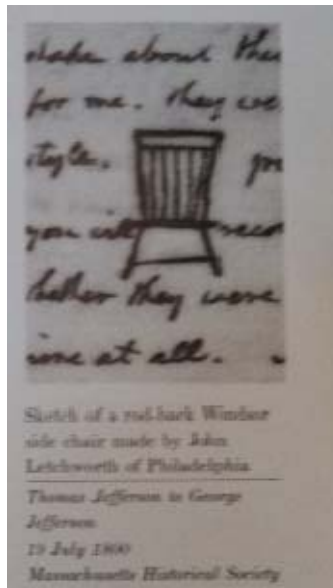 about the
for me. they we
style. yo
you will reco
hether they were
ine at all.
Sketch of a rod-back Windsor
side chair made by John
Letchworth of Philadelphia
Thomas Jefferson to George
Jefferson
19 July 1800
Massachusetts Historical Society